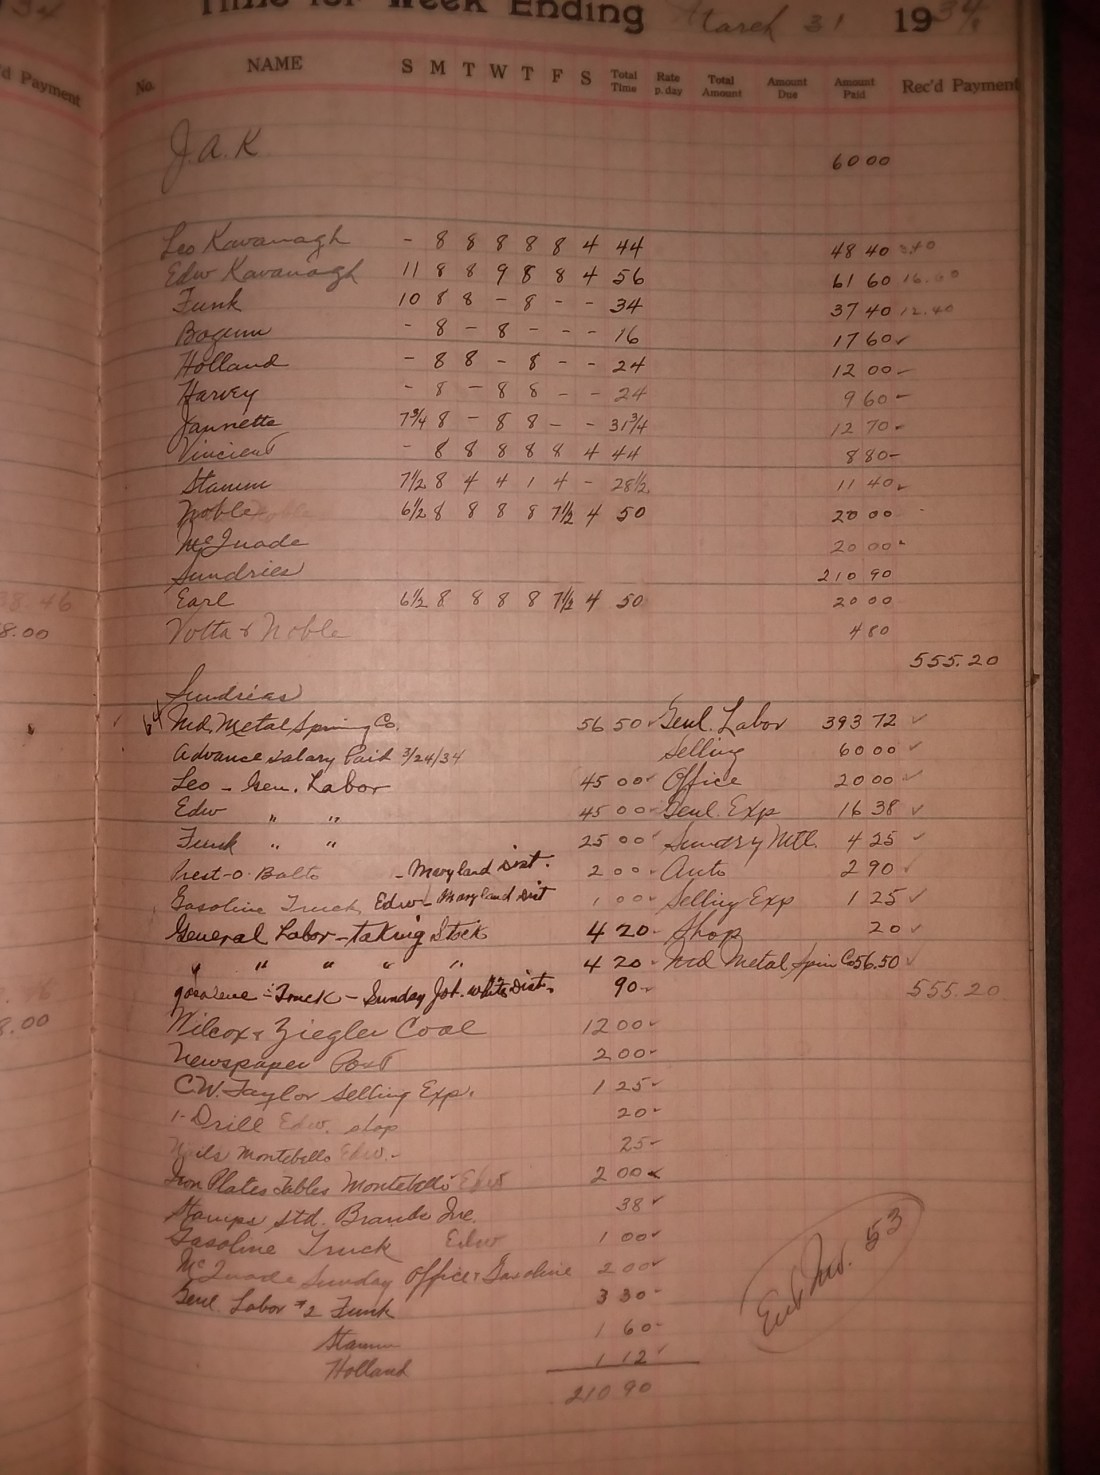 Time for Week Ending March 31 1934
No. NAME S M T W T F S Total Time Rate p. day Total Amount Amount Due Amount Paid Rec'd Payment
J.A.K. 60 00
Leo Kavanagh - 8 8 8 8 8 4 44 48 40 3.40
Edw Kavanagh 11 8 8 9 8 8 4 56 61 60 16.60
Funk 10 8 8 - 8 - - 34 37 40 12.40
- 8 - 8 - - - 16 17 60
Holland - 8 8 - 8 - - 24 12 00
Harvey - 8 - 8 8 - - 24 9 60
Jannette 7 3/4 8 - 8 8 - - 31 3/4 12 70
Vincient - 8 8 8 8 8 4 44 8 80
Stamm 7 1/2 8 4 4 1 4 - 28 1/2 11 40
Noble 6 1/2 8 8 8 8 7 1/2 4 50 20 00
McQuade 20 00
Sundries 210 90
Earl 6 1/2 8 8 8 8 7 1/2 4 50 20 00
Votta & Noble 4 80
555.20
Sundries
Md. Metal Spinning Co. 56 50 Genl. Labor 393 72
Advance Salary Paid 3/24/34 Selling 60 00
Leo - Gen. Labor 45 00 Office 20 00
Edw " " 45 00 Genl. Exp 16 38
Funk " " 25 00 Sundry Mtl. 4 25
Prest-o-Balto - Maryland Dist. 2 00 Auto 2 90
Gasoline Truck Edw - Maryland Dist 1 00 Selling Exp 1 25
General Labor - taking Stock 4 20 Shop 20
" " " " " 4 20 Md Metal Spin Co 56.50
gasolene - Truck - Sunday Job. White Dist. 90 555.20
Wilcox & Ziegler Coal 12 00
Newspaper Post 2 00
C.W. Taylor Selling Exp. 1 25
1 - Drill Edw. shop 20
Nails Montebello Edw. - 25
Iron Plates Tables Montebello Edw 2 00
Stamps Std. Brands Inc. 38
Gasoline Truck Edw 1 00
McQuade Sunday Office & Gasoline 2 00
Genl Labor #2 Funk 3 30
Stamm 1 60
Holland 1 12
210 90
Ent Inv. 53